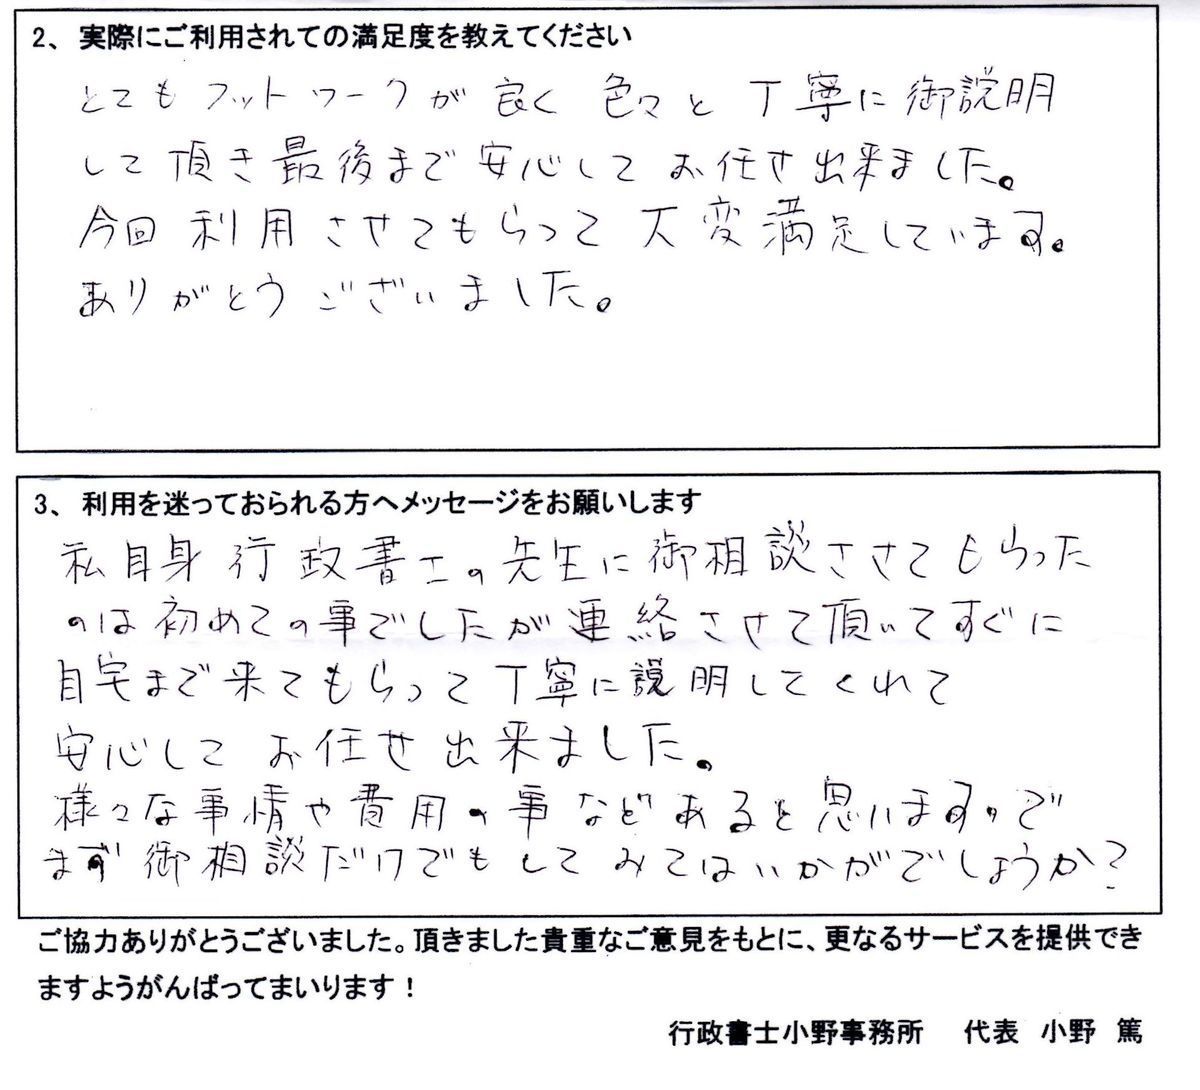 2、実際にご利用されての満足度を教えてください
とてもフットワークが良く 色々と丁寧に御説明
して頂き最後まで安心して お任せ出来ました。
今回利用させてもらって大変満足しています。
ありがとうございました。
3、利用を迷っておられる方へメッセージをお願いします
私自身行政書士の先生に御相談させてもらった
のは初めての事でしたが連絡させて頂いてすぐに
自宅まで来てもらって丁寧に説明してくれて
安心して お任せ出来ました。
様々な事情や費用の事などあると思いますので
まず御相談だけでもしてみてはいかがでしょうか?
ご協力ありがとうございました。頂きました貴重なご意見をもとに、更なるサービスを提供でき
ますようがんばってまいります！
行政書士小野事務所　代表　小野　篤